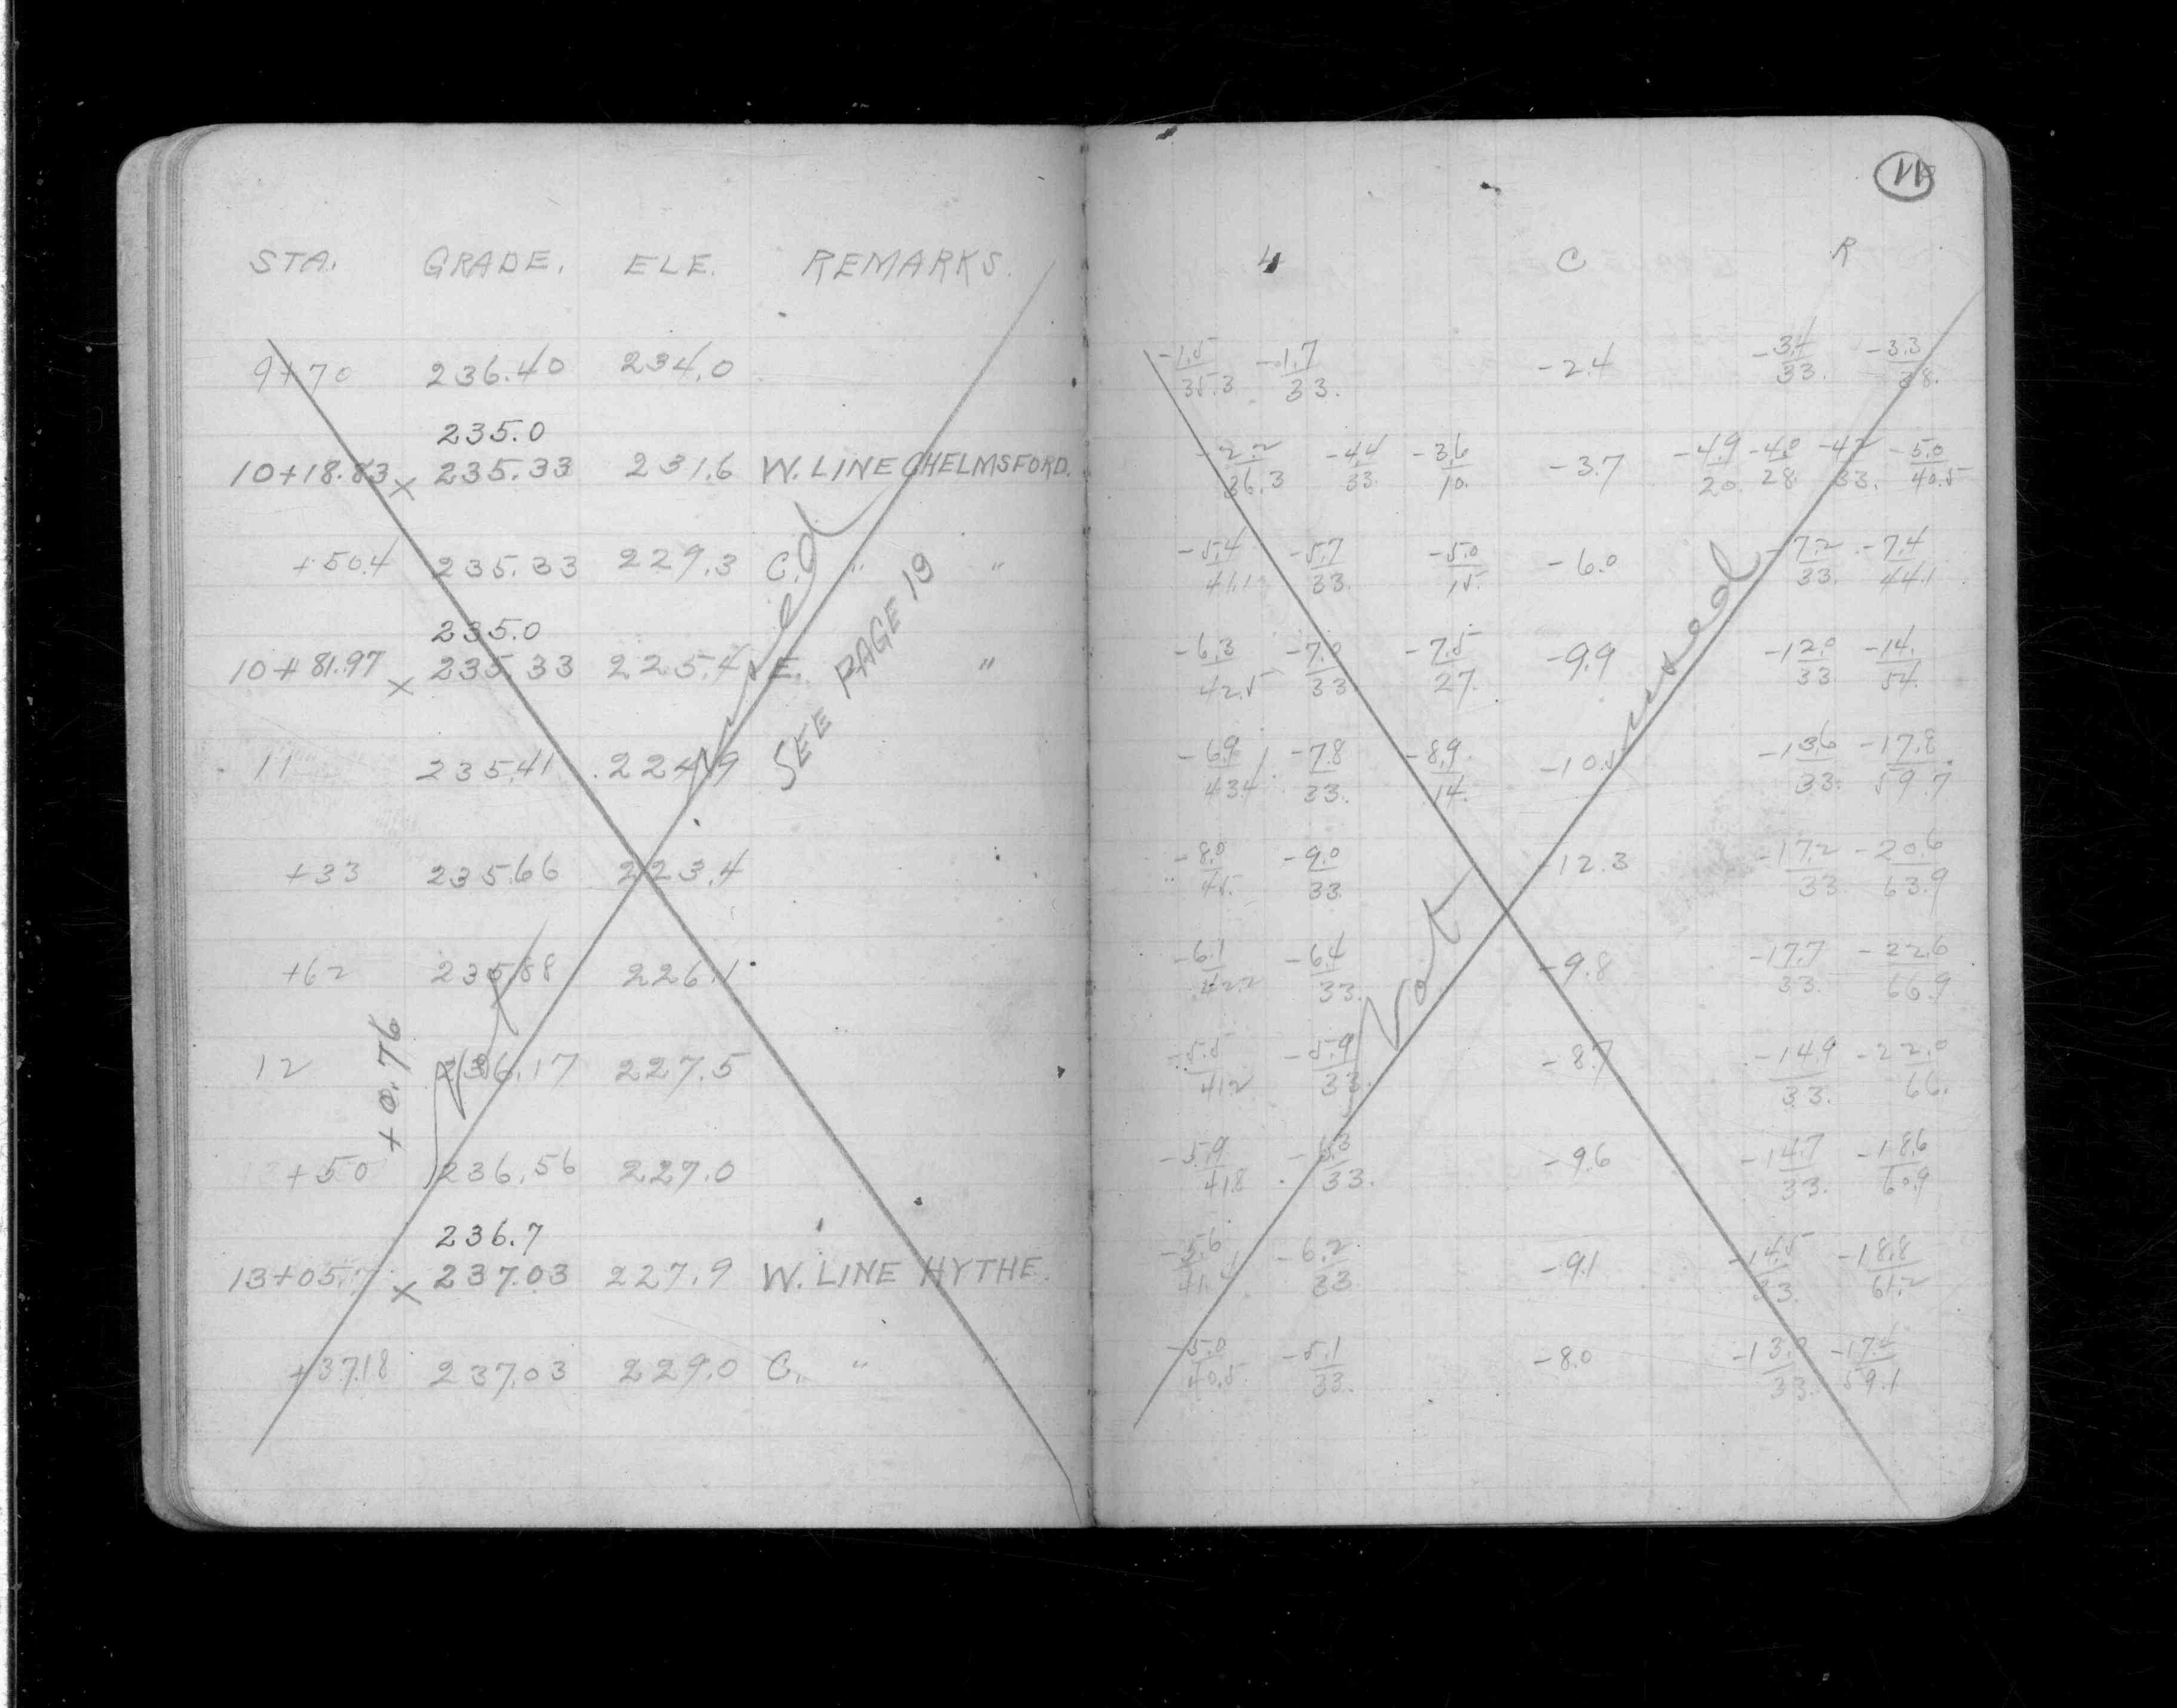 STA. GRADE. ELE. REMARKS.
9+70 236.40 234.0
235.0
10+18.83 x 235.33 231.6 W. LINE CHELMSFORD.
+50.4 235.33 229.3 C. " "
235.0
10+81.97 x 235.33 225.4 E. "
11 235.41 224.9
+33 235.66 223.4
+62 235.88 226.1
12 236.17 227.5
+50 236.56 227.0
236.7
13+05.7 x 237.03 227.9 W. LINE HYTHE.
+37.18 237.03 229.0 C. " "
+0.76
Not used
SEE PAGE 19
11
L C R
-1.5/35.3 -1.7/33. -2.4 -3.4/33. -3.3/38.
-2.2/36.3 -4.4/33. -3.6/10. -3.7 -4.9/20. -4.0/28. -4.2/33. -5.0/40.5
-5.4/41.1 -5.7/33. -5.0/15. -6.0 -7.2/33. -7.4/44.1
-6.3/42.5 -7.0/33 -7.5/27. -9.9 -12.0/33. -14./54.
-6.9/43.4 -7.8/33. -8.9/14. -10.5 -13.6/33. -17.8/59.7
-8.0/45. -9.0/33. -12.3 -17.2/33. -20.6/63.9
-6.1/42.2 -6.4/33. -9.8 -17.7/33. -22.6/66.9
-5.5/41.2 -5.9/33. -8.7 -14.9/33. -22.0/66.
-5.9/41.8 -6.3/33. -9.6 -14.7/33. -18.6/60.9
-5.6/41.4 -6.2/33. -9.1 -14.5/33. -18.8/61.2
-5.0/40.5 -5.1/33. -8.0 -13.0/33. -17.4/59.1
Not used